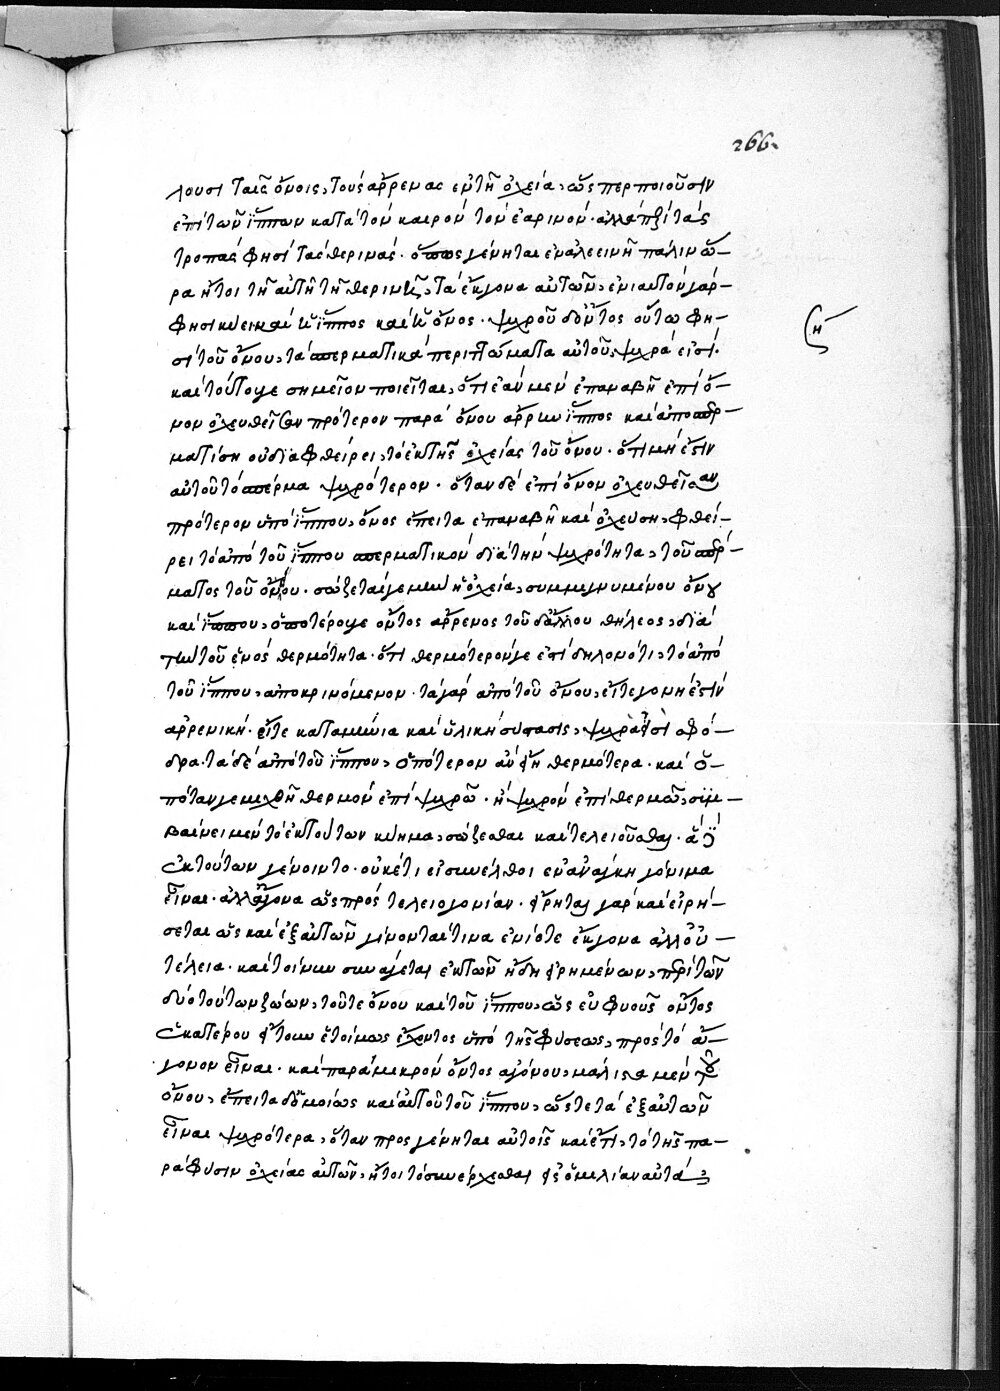 266
λουσι ταῖς ὄνοις, τοὺς ἄρρενας ἐν τῇ ὀχεία, ὥσπερ ποιοῦσιν
ἐπὶ τῶν ἵππων κατὰ τὸν καιρὸν τὸν ἐαρινόν. ἀλλὰ περὶ τὰς
τροπάς φησι τὰς θερινάς. ὅπως γένηται ἐν ἀλεεινῇ πάλιν ὥ-
ρα ἤτοι τῇ αὐτῇ τῇ θερινῇ, τὰ ἔκγονα αὐτῶν, ἐνιαυτὸν γάρ
φησι κύειν καὶ ἵππος καὶ ὄνος. ψυχροῦ δ' ὄντος οὕτω φη-
σὶ τοῦ ὄνου, τὰ σπερματικὰ περιττώματα αὐτοῦ, ψυχρά εἰσι.
καὶ τούτου γε σημεῖον ποιεῖται, ὅτι ἐὰν μὲν ἐπαναβῇ ἐπὶ ὄ-
νον ὀχευθεῖσαν πρότερον παρὰ ὄνου ἄρρην ἵππος καὶ ἀποσπερ-
ματίση οὐ διαφθείρει, τὸ ἐκ τῆς ὀχείας τοῦ ὄνου. ὅτι μή ἐστιν
αὐτοῦ τὸ σπέρμα ψυχρότερον. ὅταν δὲ ἐπὶ ὄνον ὀχευθεῖσαν
πρότερον ὑπὸ ἵππου, ὄνος ἔπειτα ἐπαναβῇ καὶ ὀχεύση, φθεί-
ρει τὸ ἀπὸ τοῦ ἵππου σπερματικὸν διὰ τὴν ψυχρότητα, τοῦ σπέρ-
ματος τοῦ ὄνου. σώζεται γε μὴν ἡ ὀχεία, συμμιγνυμένου ὄνου
καὶ ἵππου, ὁποτέρου γε ὄντος ἄρρενος τοῦ δ' ἄλλου θήλεος, διὰ
τὴν τοῦ ἑνὸς θερμότητα. ὅτι θερμότερόν γε ἐστὶ δηλονότι, τὸ ἀπὸ
τοῦ ἵππου, ἀποκρινόμενον. τὰ γὰρ ἀπὸ τοῦ ὄνου, εἴτε γονή ἐστιν
ἀρρενική. εἴτε καταμήνια καὶ ὑλικὴ σύστασις, ψυχρά ἐστι σφό-
δρα. τὰ δὲ ἀπὸ τοῦ ἵππου, ὁπότερον ἂν ᾖ θερμότερα. καὶ ὁ-
πόταν γε μιχθῇ θερμὸν ἐπὶ ψυχρῶ. ἢ ψυχρὸν ἐπὶ θερμῶ, συμ-
βαίνει μὲν τὸ ἐκ τούτων κύημα, σώζεσθαι καὶ τελειοῦσθαι.
ἐκ τούτων γένοιντο. οὐκέτι εἰ συνέλθοι ἐν ἀνάγκη γόνιμα
εἶναι. ἀλλ' ἄγονα ὡς πρὸς τελειογονίαν. εἴρηται γὰρ καὶ εἰρή-
σεται ὡς καὶ ἐξ αὐτῶν γίνονται τινα ἐνίοτε ἔκγονα ἀλλ' οὐ
τέλεια. καὶ τοίνυν συνάγεται ἐκ τῶν ἤδη εἰρημένων, περὶ τῶν
δύο τούτων ζώων, τοῦτε ὄνου καὶ τοῦ ἵππου, ὡς εὐφυοῦς ὄντος
ἑκατέρου ἤτουν ἑτοίμως ἔχοντος ὑπὸ τῆς φύσεως, πρὸς τὸ ἄ-
γονον εἶναι. καὶ παρὰ μικρὸν ὄντος ἀγόνου, μάλιστα μὲν τοῦ
ὄνου, ἔπειτα δ' ὁμοίως καὶ αὐτοῦ τοῦ ἵππου, ὥστε τὰ ἐξ αὐτῶν
εἶναι ψυχρότερα, ὅταν προσγένηται αὐτοῖς καὶ ἔτι, τὸ τῆς πα-
ρὰ φύσιν ὀχείας αὐτῶν, ἤτοι τὸ συνέρχεσθαι εἰς ὁμιλίαν αὐτὰ